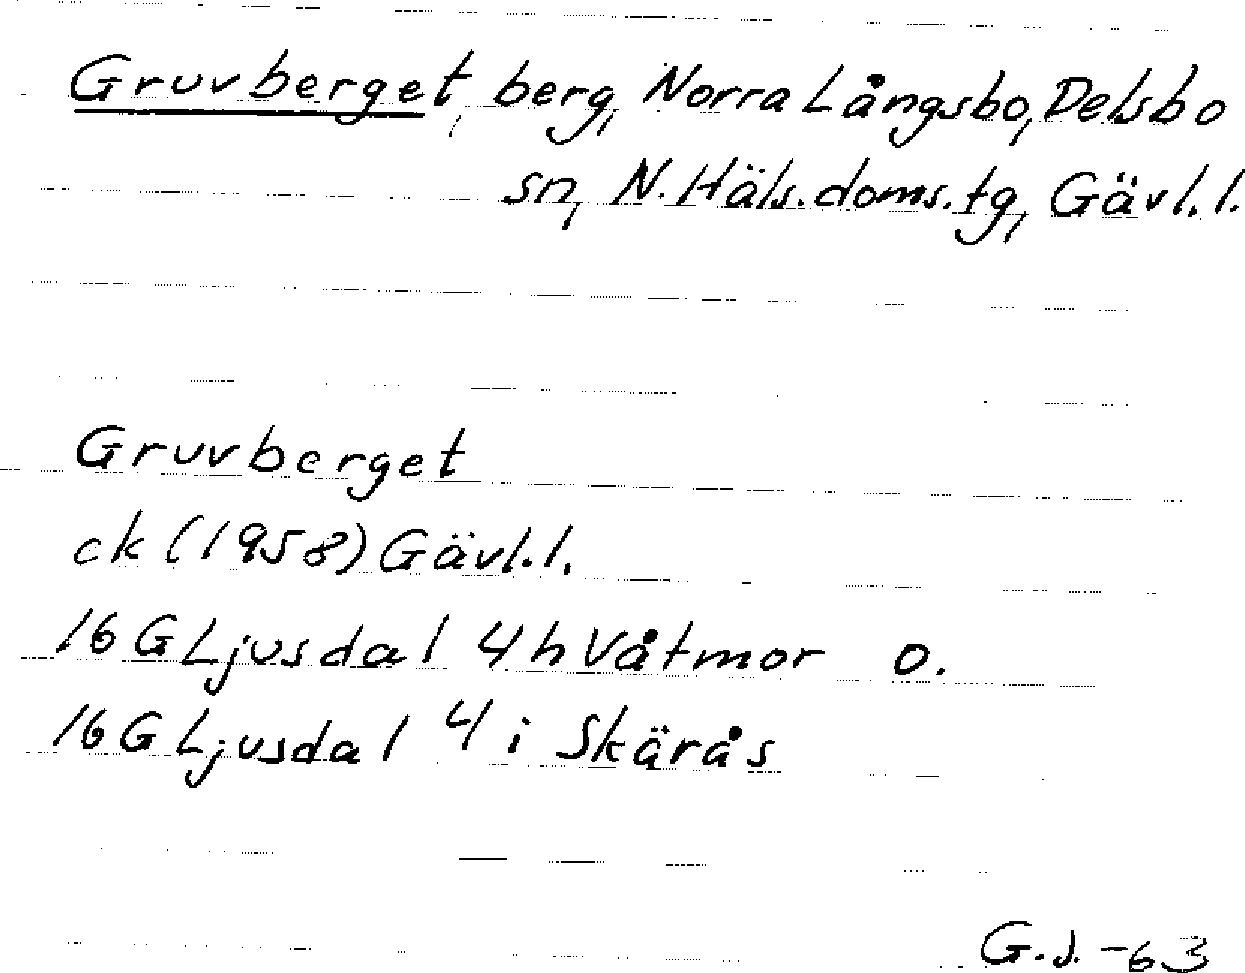 Gruvberget, berg, Norra Långsbo, Delsbo
sn, N. Häls. doms. tg, Gävl. l.
Gruvberget
ek (1958) Gävl. l.
16 G Ljusdal 4 h Våtmor o.
16 G Ljusdal 4 i Skärås
G.J. -63